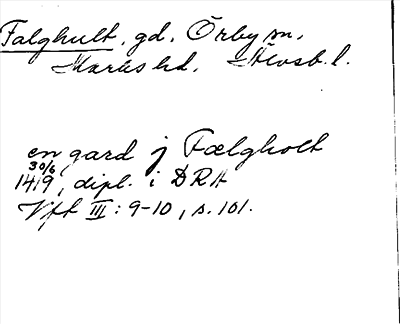 Falghult, gd, Örby sn,
Marks hd, Älvsb. l.
en gard j Fælgholt
30/6
1419, dipl. i DRA
Vft III: 9-10, s. 101.